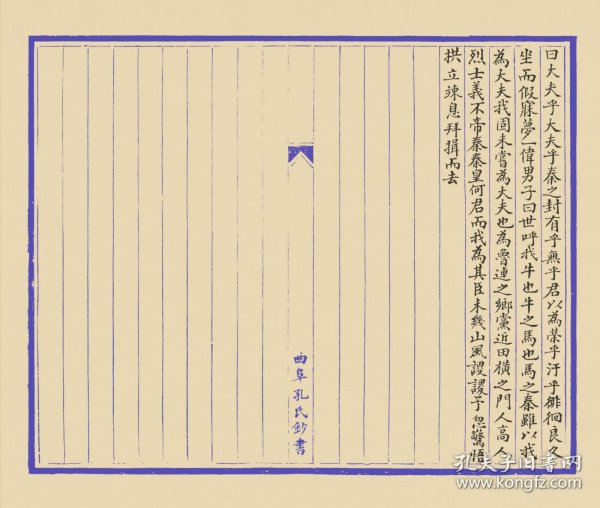 曰大夫乎大夫乎秦之封有乎無乎君以為榮乎汙乎徘徊良久
坐而假寐夢一偉男子曰世呼我牛也牛之馬也馬之秦雖以我
為大夫我固未嘗為大夫也為魯連之鄉黨近田橫之門人高人
烈士義不帝秦秦皇何君而我為其臣未幾山風謖謖予忽驚悟
拱立竦息拜揖而去
曲阜孔氏鈔書
孔夫子旧书网
www.kongfz.com